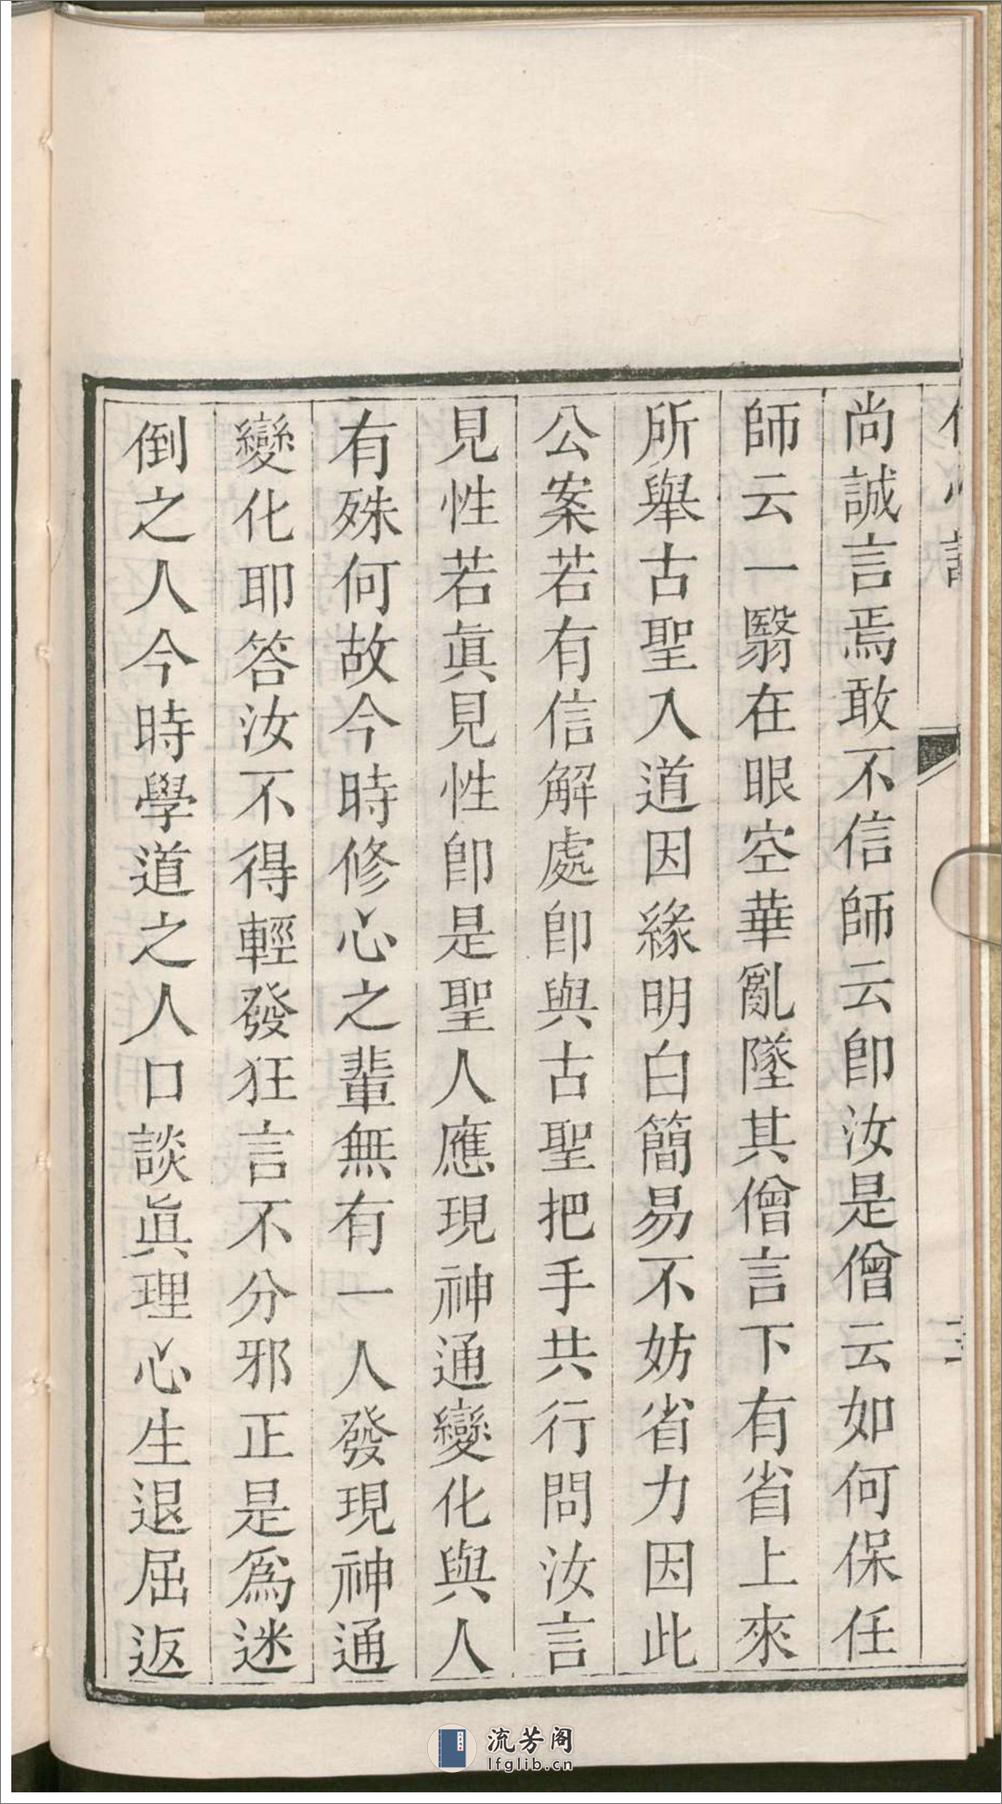 尚誠言焉敢不信師云卽汝是僧云如何保任
師云一翳在眼空華亂墜其僧言下有省上來
所舉古聖入道因緣明白簡易不妨省力因此
公案若有信解處卽與古聖把手共行問汝言
見性若眞見性卽是聖人應現神通變化與人
有殊何故今時修心之輩無有一人發現神通
變化耶答汝不得輕發狂言不分邪正是爲迷
倒之人今時學道之人口談眞理心生退屈返
流芳阁
lfglib.cn